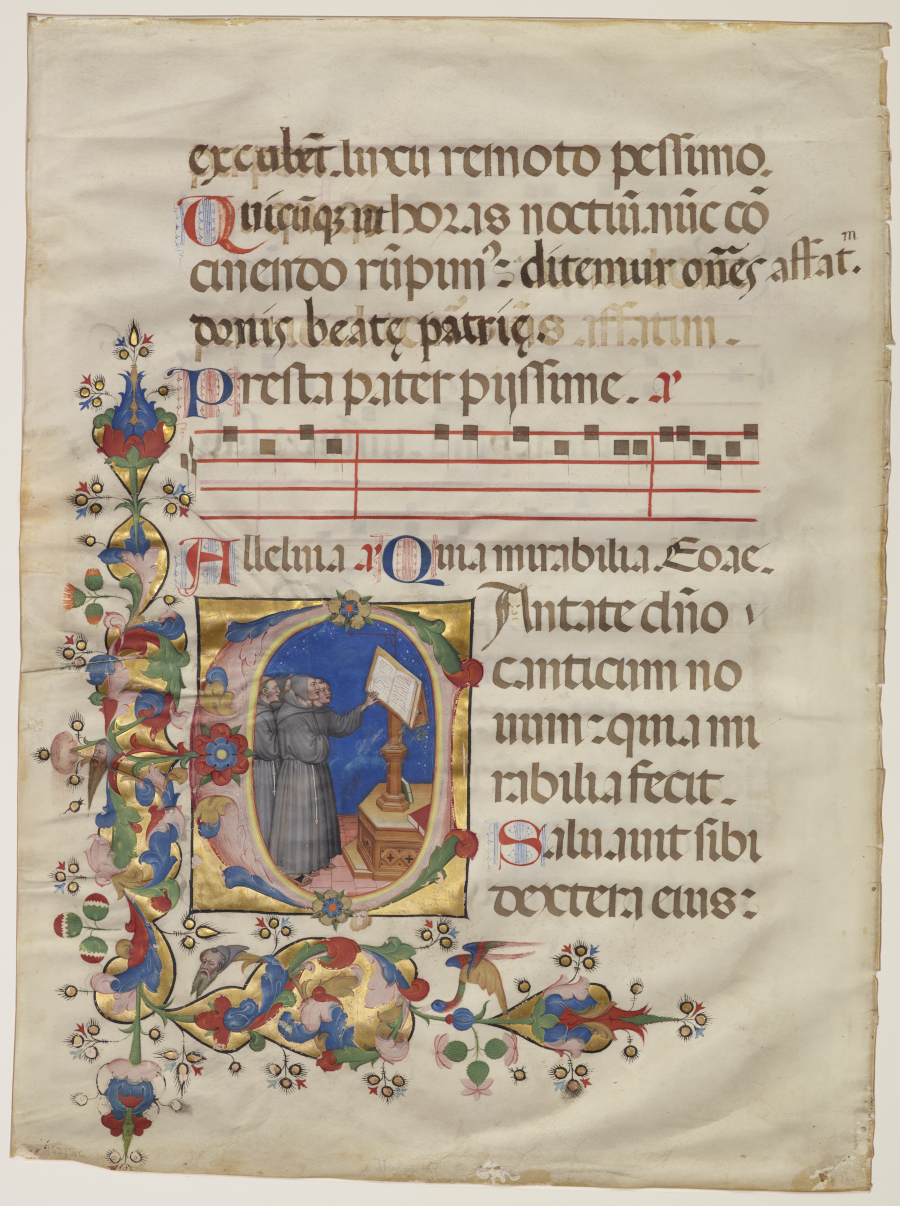 excubet. luxu remoto pessimo.
Quicūq; ut horas noctiū. nūc cō
cinendo rūpim⁹: ditemur oñes affatᵐ.
donis beatę patrię.
Presta pater pijssime. a
Alleluia a Quia mirabilia. Eoae.
Antate dño
canticum no
uum: quia mi
rabilia fecit.
Saluauit sibi
dextera eius: